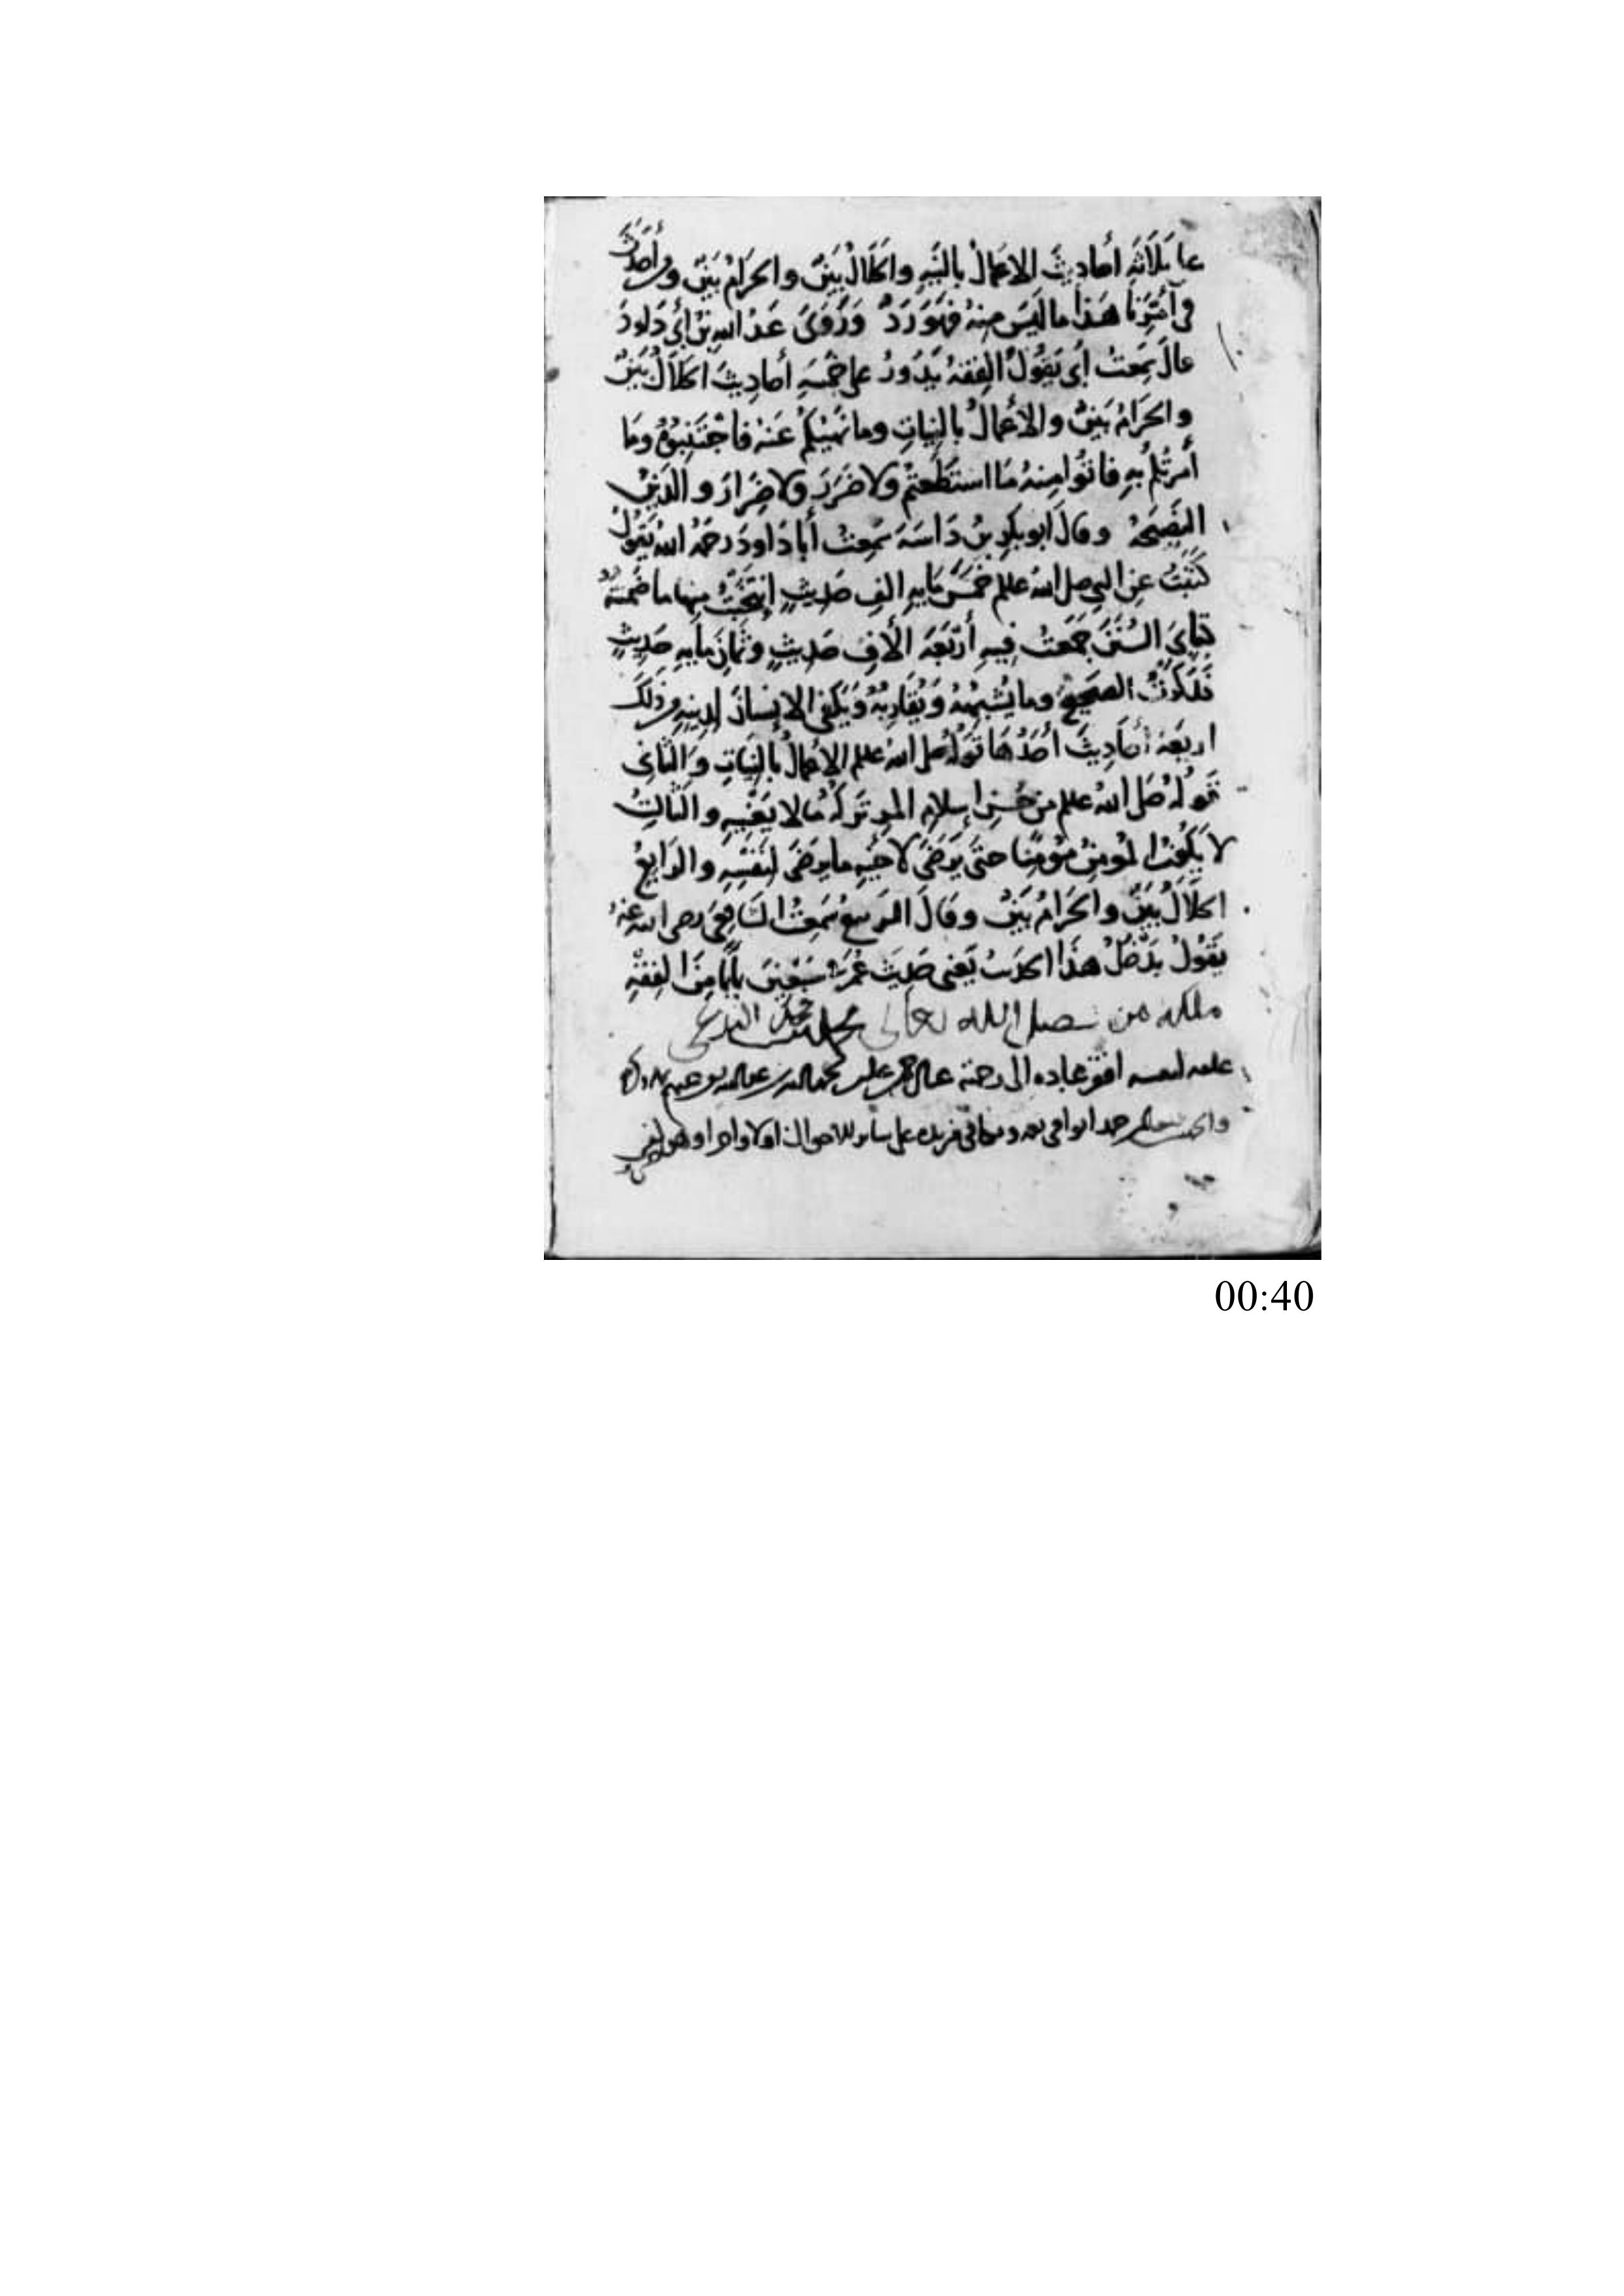 على ثلاثة أحاديث الاعمال بالنية والحلال بين والحرام بين ومن أحدث
في أمرنا هذا ما ليس منه فهو رد وروى عبد الله بن أبي داود
قال سمعت أبي يقول الفقه يدور على خمسة أحاديث الحلال بين
والحرام بين والأعمال بالنيات وما نهيتكم عنه فاجتنبوه وما
أمرتكم به فاتوا منه ما استطعتم ولا ضرر ولا ضرار والدين
النصيحة وقال ابو بكر بن داسة سمعت أبا داود رحمه الله يقول
كتبت عن النبي صلى الله عليه وسلم خمس ماية الف حديث انتخبت منها ما ضمنته
كتاب السنن جمعت فيه أربعة الأف حديث وثمان ماية حديث
ذكرت الصحيح وما يشبهه ويقاربه ويكفي الانسان لدينه من ذلك
اربعة أحاديث أحدها قوله صلى الله عليه وسلم الاعمال بالنيات والثاني
قوله صلى الله عليه وسلم من حسن إسلام المرء تركه ما لا يعنيه والثالث
لا يكون المومن مؤمنا حتى يرضى لاخيه ما يرضى لنفسه والرابع
الحلال بين والحرام بين وقال الربيع سمعت الشافعي رضي الله عنه
يقول يدخل هذا الحديث يعني حديث عمر سبعين بابا من الفقه
ملكه من فضل الله تعالى محمد
علقه لنفسه افقر عباده الى رحمته
على سائر الاحوال اولا واخرا وهو
00:40